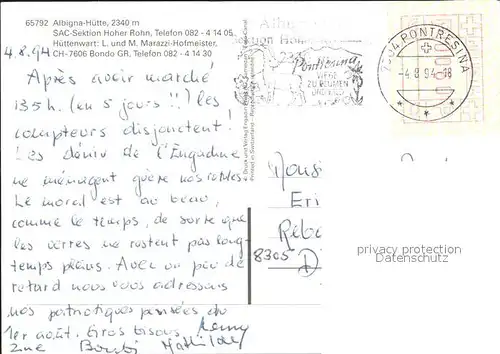 65792 Albigna-Hütte, 2340 m
SAC-Sektion Hoher Rohn, Telefon 082 - 4 14 05
Hüttenwart: L. und M. Marazzi-Hofmeister,
CH-7606 Bondo GR, Telefon 082 - 4 14 30
4.8.94
Après avoir marché
135 h. (en 5 jours !!) les
compteurs disjonctent!
Les déniv de l'Engadine
ne ménagent guère nos
Le moral est au beau,
comme le temps, de sorte que
les verres ne restent pas long-
temps pleins. Avec un peu de
retard nous vous adressons
nos patriotiques pensées du
1er août. Gros bisous
Mathilde
Pontresina
WEGE
ZU BLUMEN
7504 PONTRESINA
-4.8.94-18
Eri
8305
D
privacy protection
Datenschutz